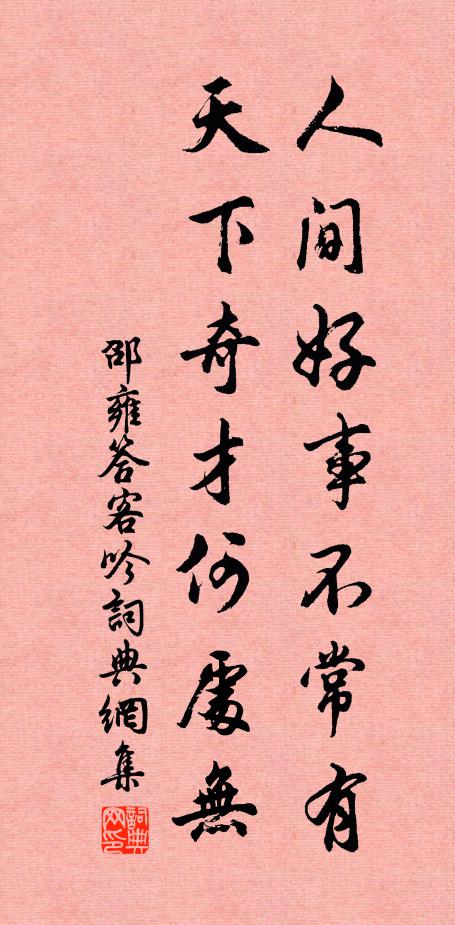 人間好事不常有
天下奇才何處無
邵雍答客吟詞典網集
詞典网印